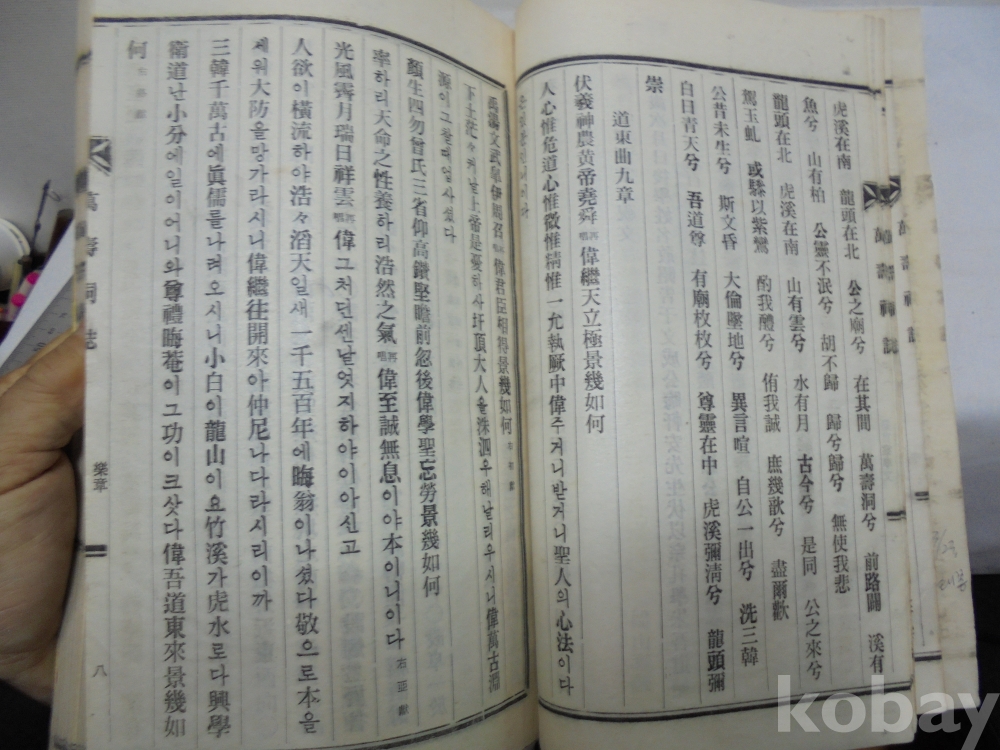 虎溪在南 龍頭在北 公之廟兮 在其間 萬壽洞兮 前路闢 溪有
魚兮 山有柏 公靈不泯兮 胡不歸 歸兮歸兮 無使我悲
龍頭在北 虎溪在南 山有雲兮 水有月 古今兮 是同 公之來兮
駕玉虬 或驂以紫鸞 酌我醴兮 侑我誠 庶幾歆兮 盡爾歡
公昔未生兮 斯文昏 大倫墜地兮 異言喧 自公一出兮 洗三韓
白日青天兮 吾道尊 有廟枚枚兮 尊靈在中 虎溪彌清兮 龍頭彌
崇
道東曲九章
伏羲神農黃帝堯舜 再唱 偉繼天立極景幾如何
人心惟危道心惟微惟精惟一允執厥中偉주거니받거니聖人의心法이다
禹湯文武皐伊周召 再唱 偉君臣相得景幾如何 右初獻
下土茫々커날上帝是憂하사圩頂大人을洙泗우해날리우시니偉萬古淵
源이그칠때업사섰다
顏生四勿曾氏三省仰高鑽堅瞻前忽後偉學聖忘勞景幾如何
率하리天命之性養하리浩然之氣 再唱 偉至誠無息이야本이니이다 右亞獻
光風霽月瑞日祥雲 再唱 偉그처던센날엇지하야이아신고
人欲이橫流하야浩々滔天일새一千五百年에晦翁이나섰다敬으로本을
세워大防을망가라시니偉繼往開來아仲尼나다라시리이까
三韓千萬古에眞儒를나려오시니小白이龍山이요竹溪가虎水로다興學
衛道난小分에일이어니와尊禮晦菴이그功이크삿다偉吾道東來景幾如
何
萬壽祠誌
樂章
八
kobay